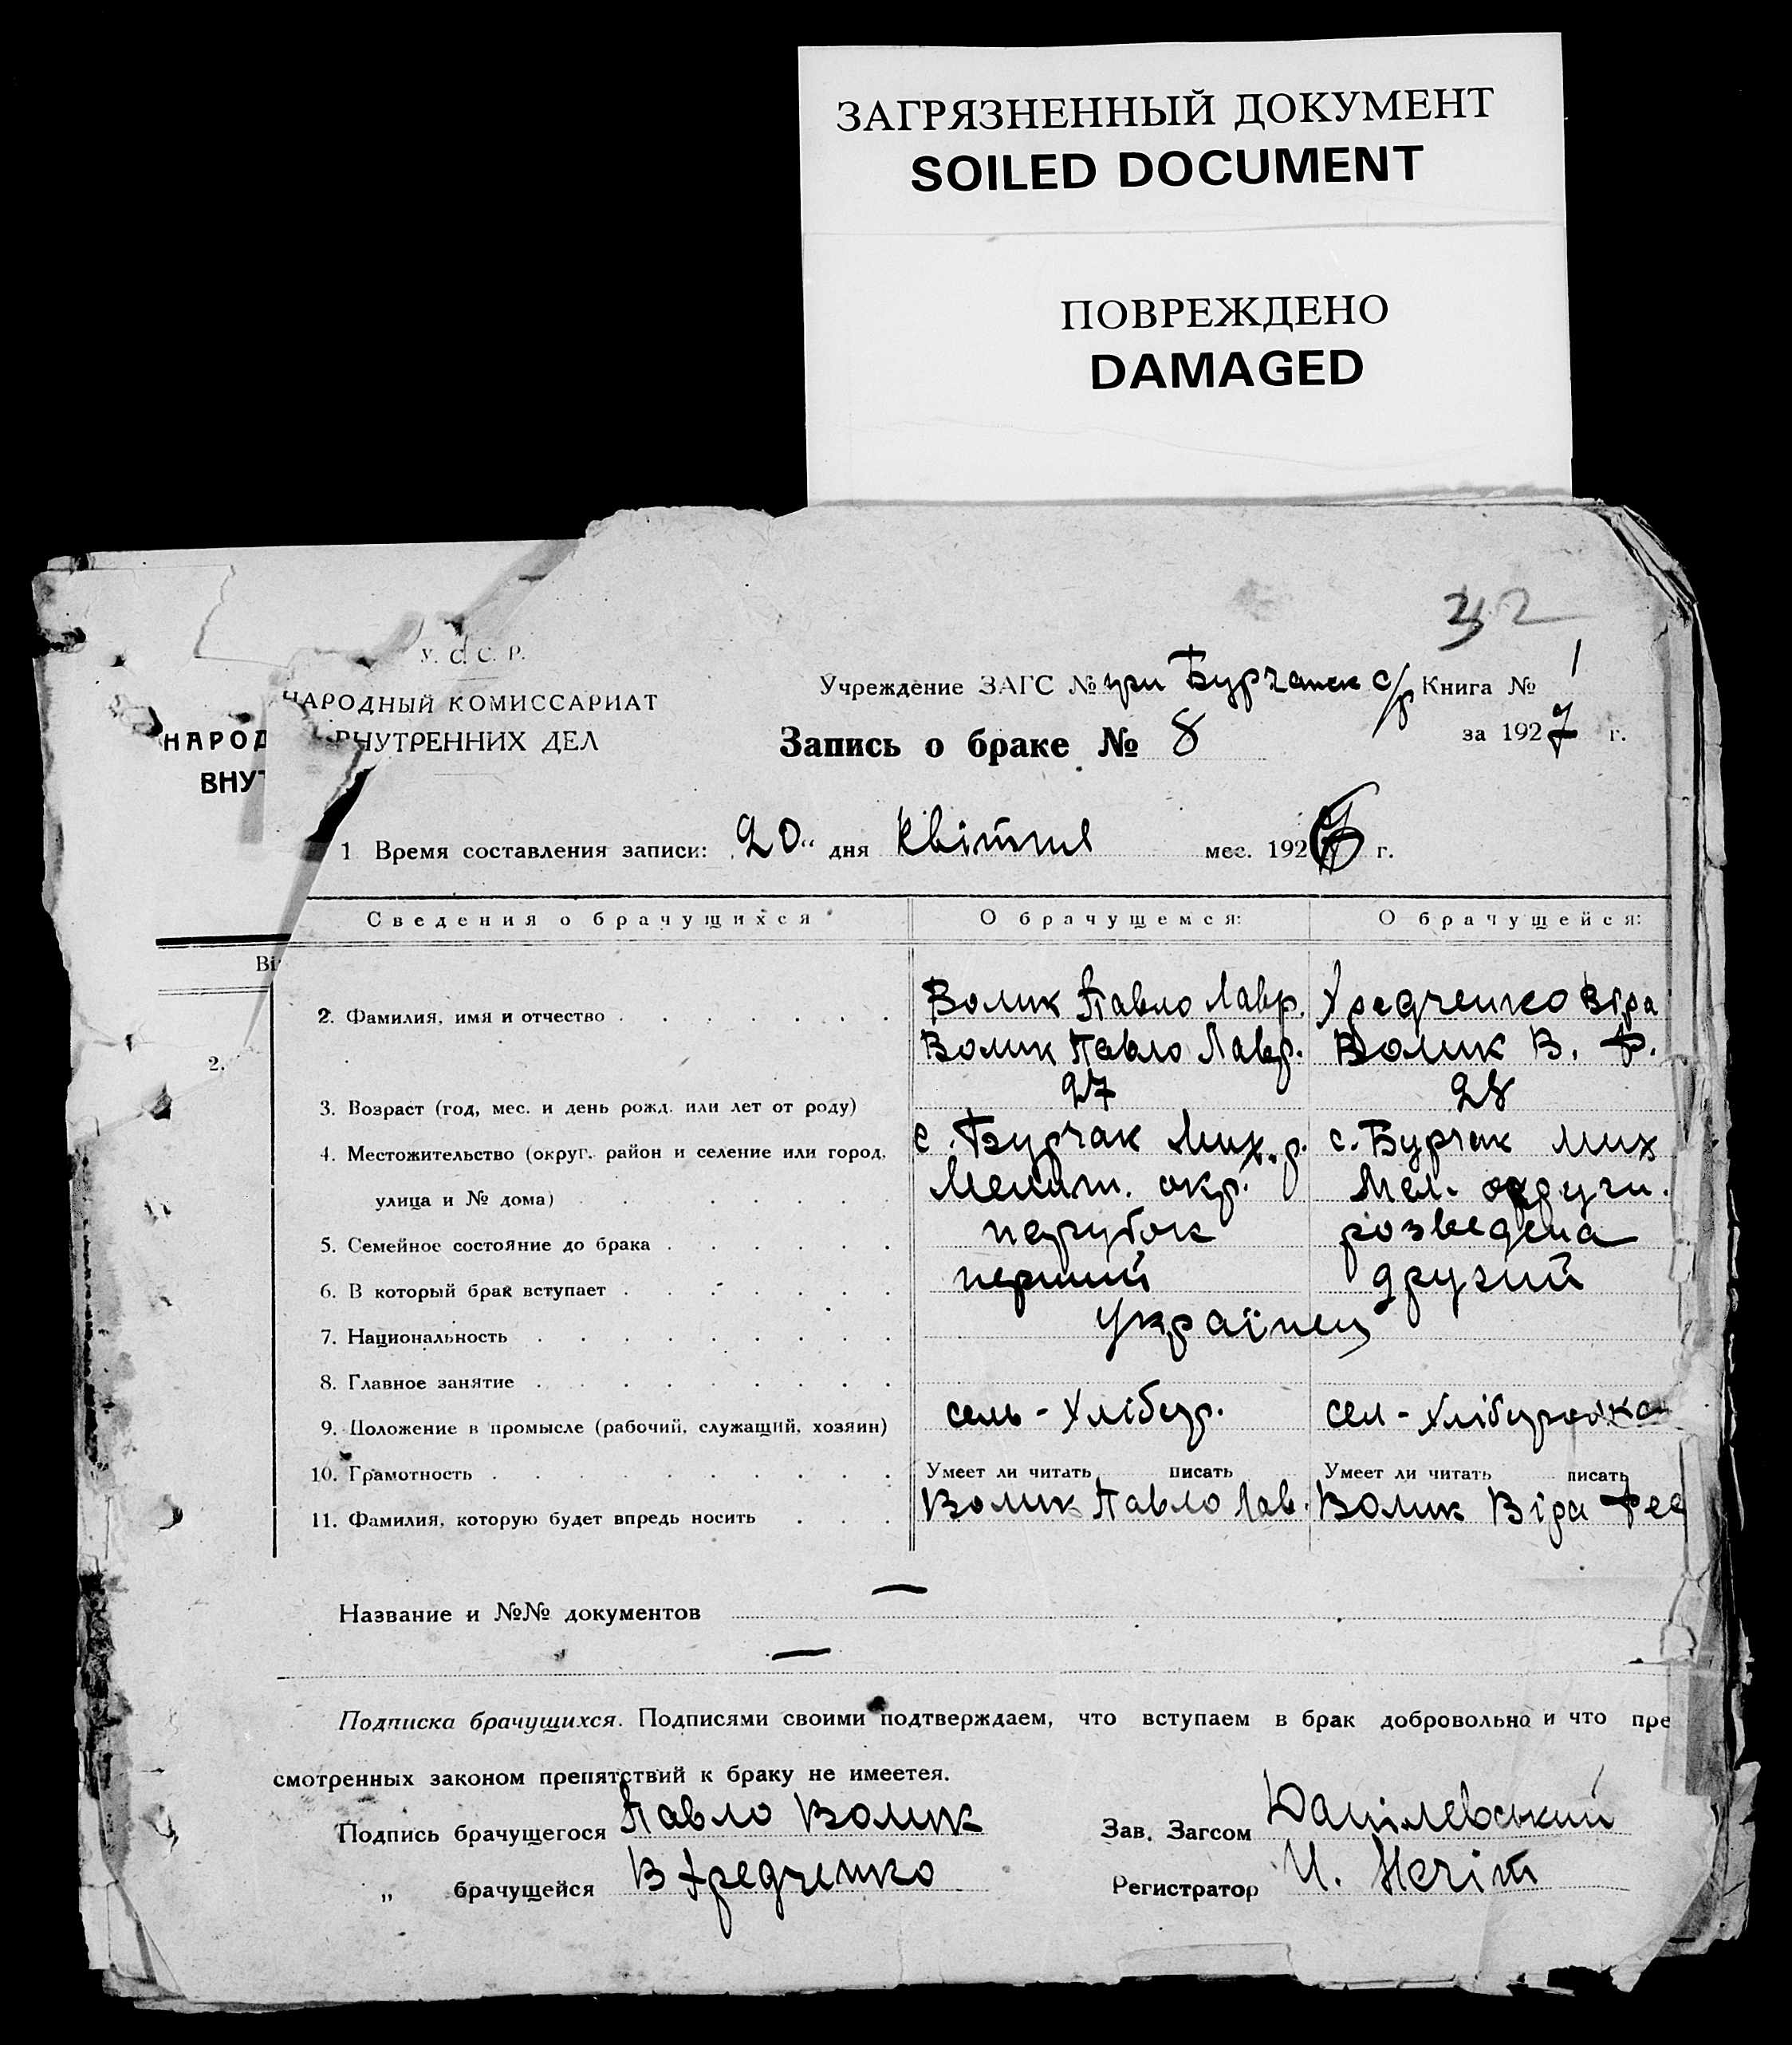 ЗАГРЯЗНЕННЫЙ ДОКУМЕНТ
SOILED DOCUMENT
ПОВРЕЖДЕНО
DAMAGED
32
У. С. С. Р.
НАРОДНЫЙ КОМИССАРИАТ
ВНУТРЕННИХ ДЕЛ
НАРОД
ВНУТ
Учреждение ЗАГС № при Бурчанск с/р Книга № 1
Запись о браке № 8 за 1927 г.
1 Время составления записи: „20“ дня квітня мес. 1927 г.
Сведения о брачущихся О брачущемся: О брачущейся:
Ві
2. Фамилия, имя и отчество Волик Павло Лавр. Хредченко Віра
2. Волик Павло Лавр. Волик В. Ф.
3. Возраст (год, мес. и день рожд. или лет от роду) 27 28
4. Местожительство (округ. район и селение или город, с. Бурчак Мих. р. с. Бурчак Мих
улица и № дома) Мелит. окр. Мел. округи.
5. Семейное состояние до брака парубок розведена
6. В который брак вступает перший другий
7. Национальность Українец
8. Главное занятие
9. Положение в промысле (рабочий, служащий, хозяин) сель-хлібор. сел-хліборобка
10. Грамотность Умеет ли читать писать Умеет ли читать писать
11. Фамилия, которую будет впредь носить Волик Павло Лав. Волик Віра Фед
Название и №№ документов —
—
Подписка брачущихся. Подписями своими подтверждаем, что вступаем в брак добровольно и что пре
смотренных законом препятствий к браку не имеетея.
Подпись брачущегося Павло Волик Зав. Загсом Данілевський
„ брачущейся В Хредченко Регистратор